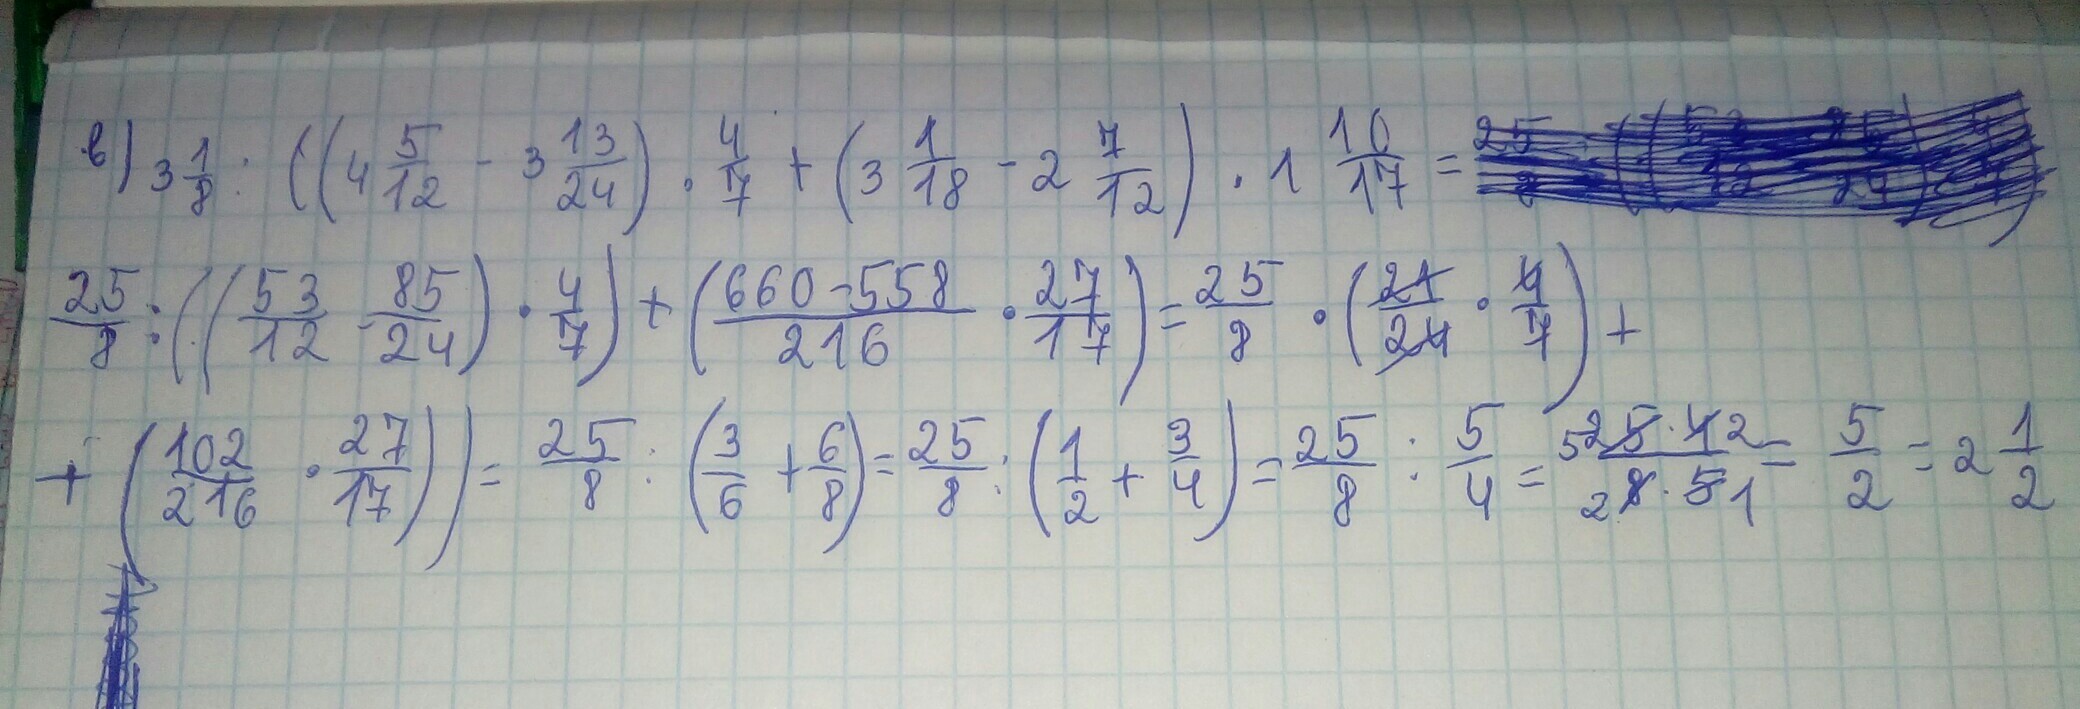 в) 3 1/8 : ((4 5/12 - 3 13/24) · 4/7 + (3 1/18 - 2 7/12) · 1 10/17 =
25/8 : ((53/12 - 85/24) · 4/7) + (660-558/216 · 27/17) = 25/8 · (21/24 · 4/7) +
+ (102/216 · 27/17)) = 25/8 : (3/6 + 6/8) = 25/8 : (1/2 + 3/4) = 25/8 : 5/4 = 5 25 · 4 2/2 8 · 5 1 = 5/2 = 2 1/2